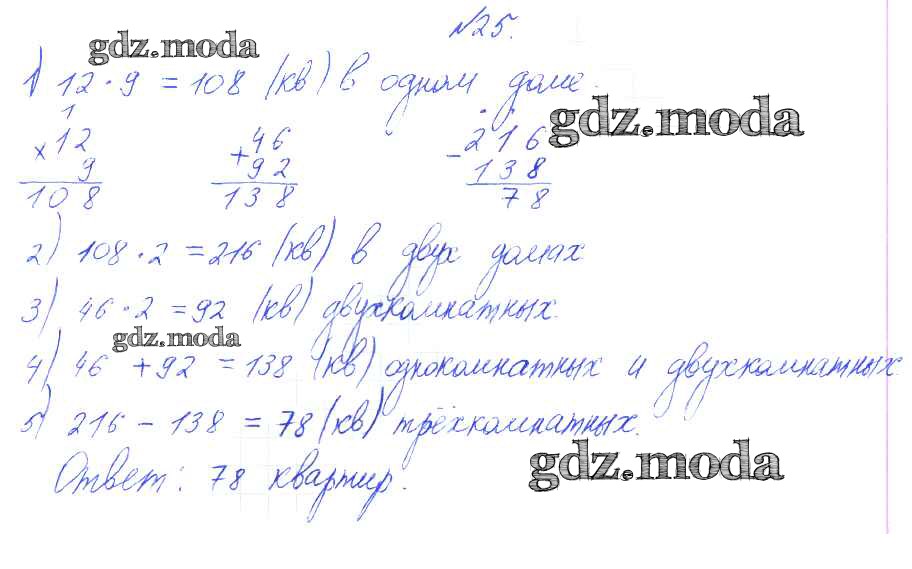 №25.
gdz.moda
1) 12 · 9 = 108 (кв) в одном доме.
gdz.moda
1
× 12   + 46   - 216
9   92   138
108   138   78
2) 108 · 2 = 216 (кв) в двух домах
3) 46 · 2 = 92 (кв) двухкомнатных.
gdz.moda
4) 46 + 92 = 138 (кв) однокомнатных и двухкомнатных
5) 216 - 138 = 78 (кв) трёхкомнатных.
gdz.moda
Ответ: 78 квартир.